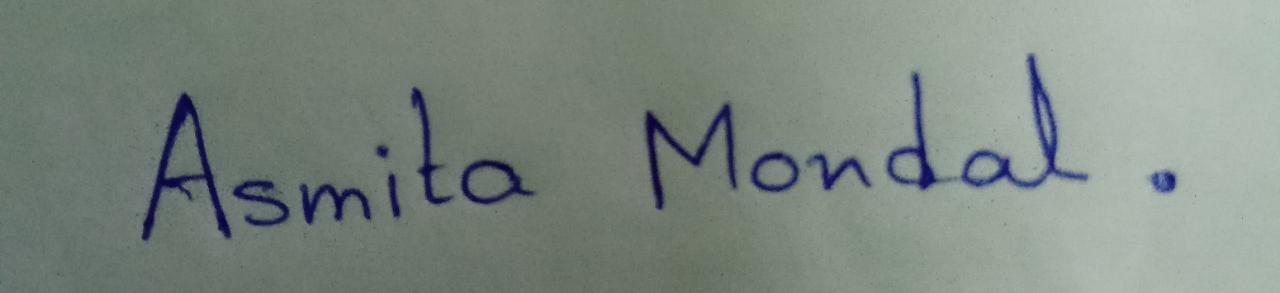 Asmita Mondal.